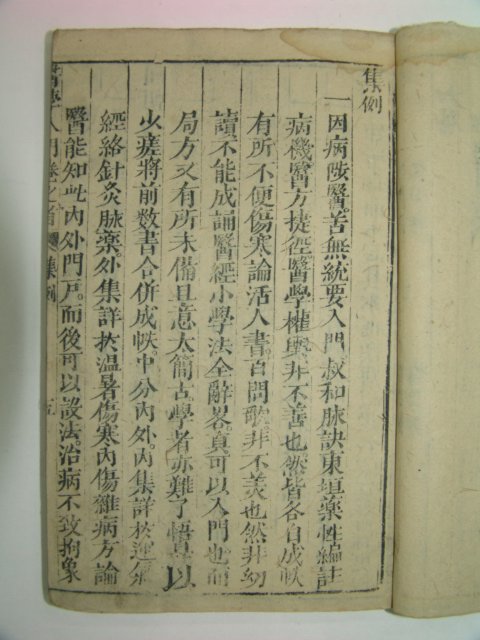 集例
一因病陟醫。苦無統要入門。叔和脉訣東垣藥性編註
病機醫方捷徑。醫學權輿。非不善也。然皆各自成帙
有所不便。傷寒論活人書。百問歌。非不美也。然非幼
讀不能成誦。醫經小學法全辭畧。真可以入門也。而
局方又有所未備。且意太簡古。學者亦難了悟。是以
少瘥將前数書合併成帙。中分內外。內集詳扵運氣
經絡針灸脉藥。外集詳扵溫暑傷寒內傷雜病方論
醫能知此內外門戶。而後可以設法治病。不致拘象
入門卷之首 集例 五